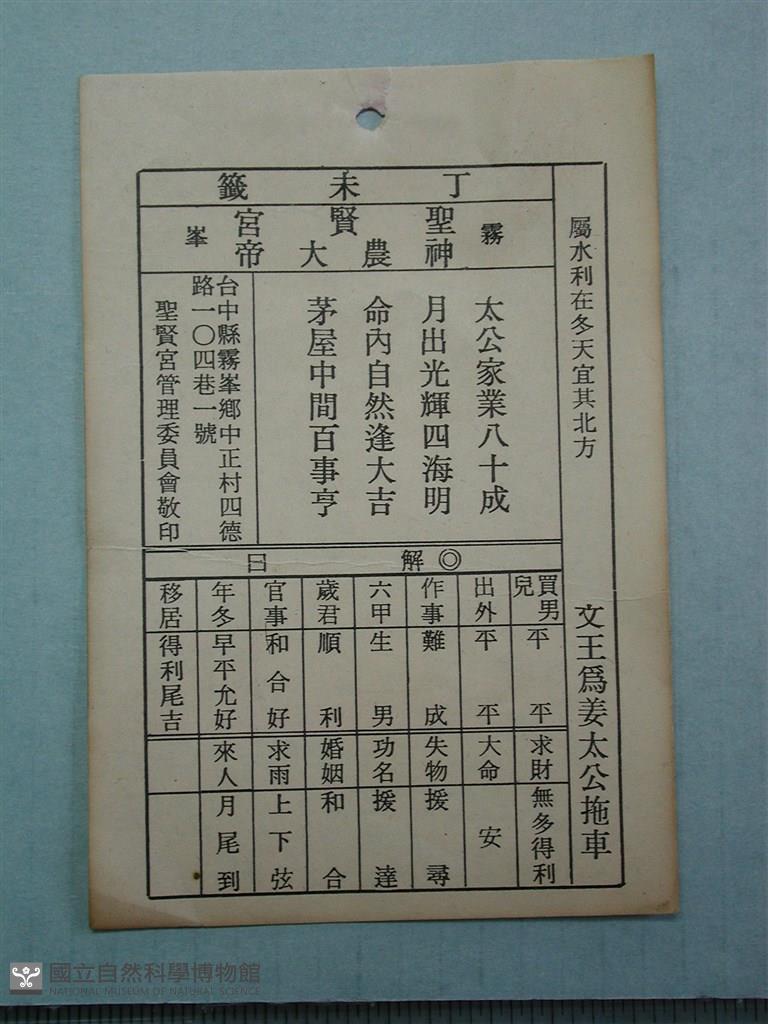 屬水利在冬天宜其北方
文王爲姜太公拖車
丁未籤
霧
聖賢宮
神農大帝
峯
太公家業八十成
月出光輝四海明
命內自然逢大吉
茅屋中間百事亨
台中縣霧峯鄉中正村四德
路一〇四巷一號
聖賢宮管理委員會敬印
◎解曰
買男兒 平平 求財 無多得利
出外 平平 大命 安
作事 難成 失物 援尋
六甲 生男 功名 援達
歲君 順利 婚姻 和合
官事 和合好 求雨 上下弦
年冬 早平允好 來人 月尾到
移居 得利尾吉
國立自然科學博物館
NATIONAL MUSEUM OF NATURAL SCIENCE